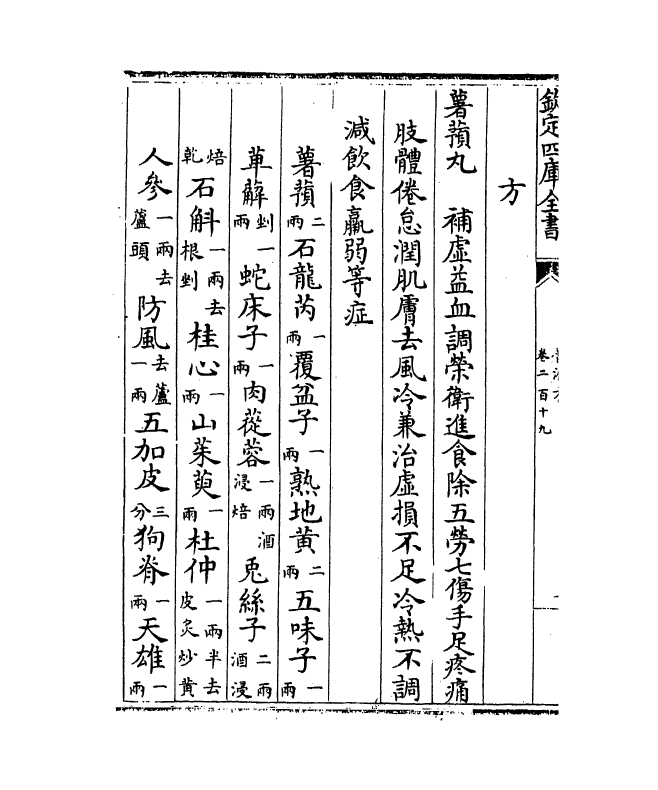 欽定四庫全書
卷二百十九
方
薯蕷丸　補虛益血調榮衛進食除五勞七傷手足疼痛
肢體倦怠潤肌膚去風冷兼治虛損不足冷熱不調
減飲食羸弱等症
薯蕷二兩石龍芮一兩覆盆子一兩熟地黄二兩五味子一兩
萆薢一兩剉蛇床子一兩肉蓯蓉一兩酒浸焙兎絲子二兩酒浸
焙乾石斛一兩去根剉桂心一兩山茱萸一兩杜仲一兩半去皮炙炒黄
人參一兩去蘆頭防風去蘆一兩五加皮三分狗脊一兩天雄一兩